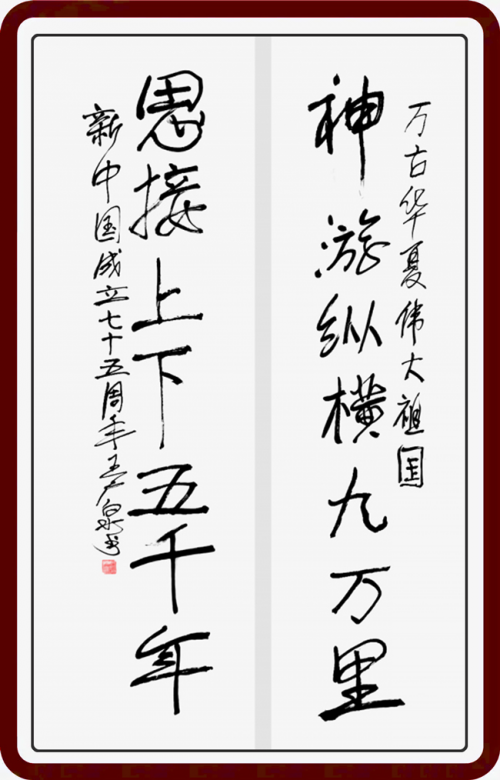 万古华夏伟大祖国
神游纵横九万里
思接上下五千年
新中国成立七十五周年